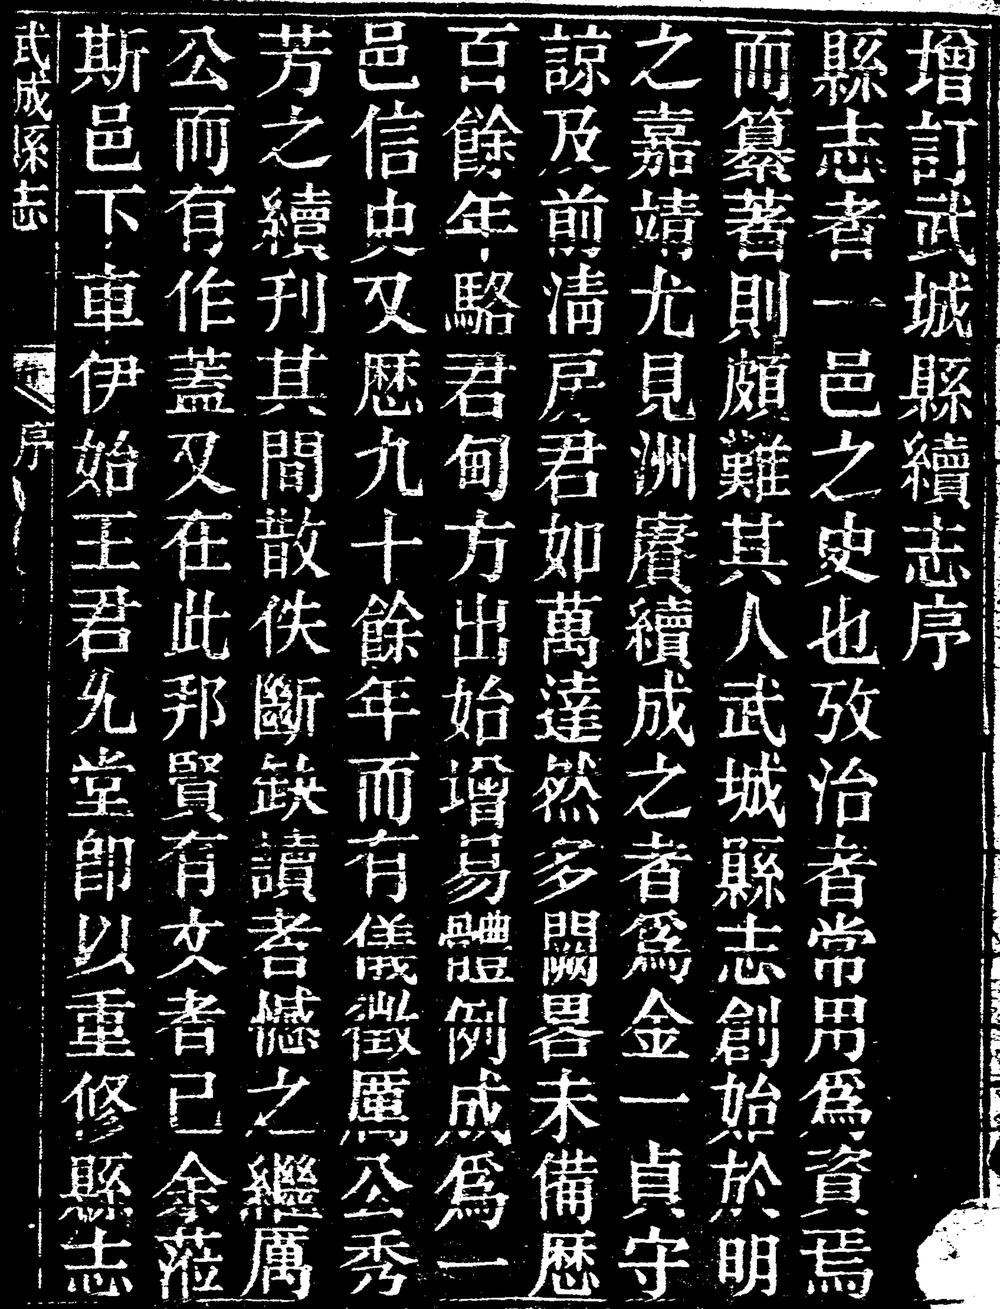 增訂武城縣續志序
縣志者一邑之史也攷治者常用爲資焉
而纂著則頗難其人武城縣志創始於明
之嘉靖尤見洲賡續成之者爲金一貞守
諒及前清房君如萬達然多闕畧未備歷
百餘年駱君甸方出始增易體例成爲一
邑信史又歷九十餘年而有儀徵厲公秀
芳之續刋其間散佚斷缺讀者憾之繼厲
公而有作蓋又在此邦賢有文者已余蒞
斯邑下車伊始王君允堂卽以重修縣志
武城縣志
序